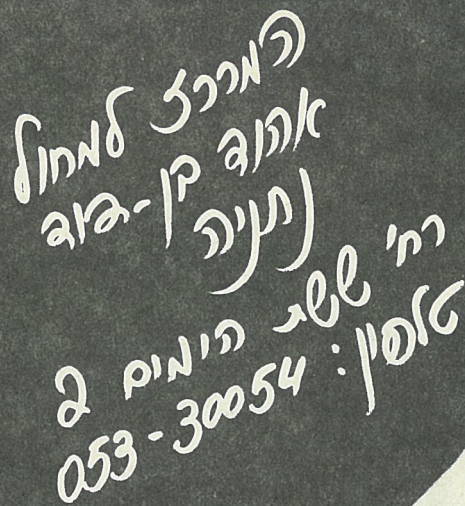 המרכז למחול
אהוד בן-דוד
נתניה
רח' ששת הימים 2
טלפון: 053-30054